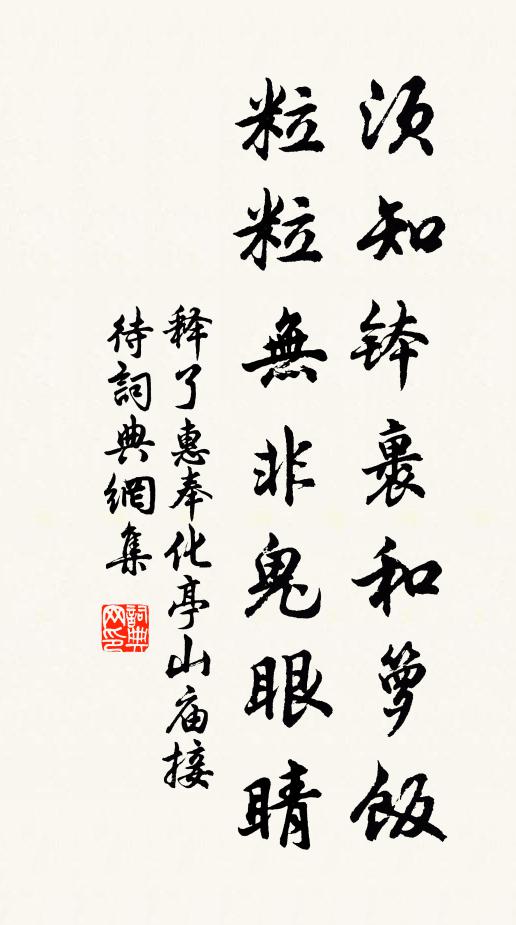 须知钵裹和箩饭
粒粒無非鬼眼睛
释了惠奉化亭山庙接
待詞典網集
詞典
网印